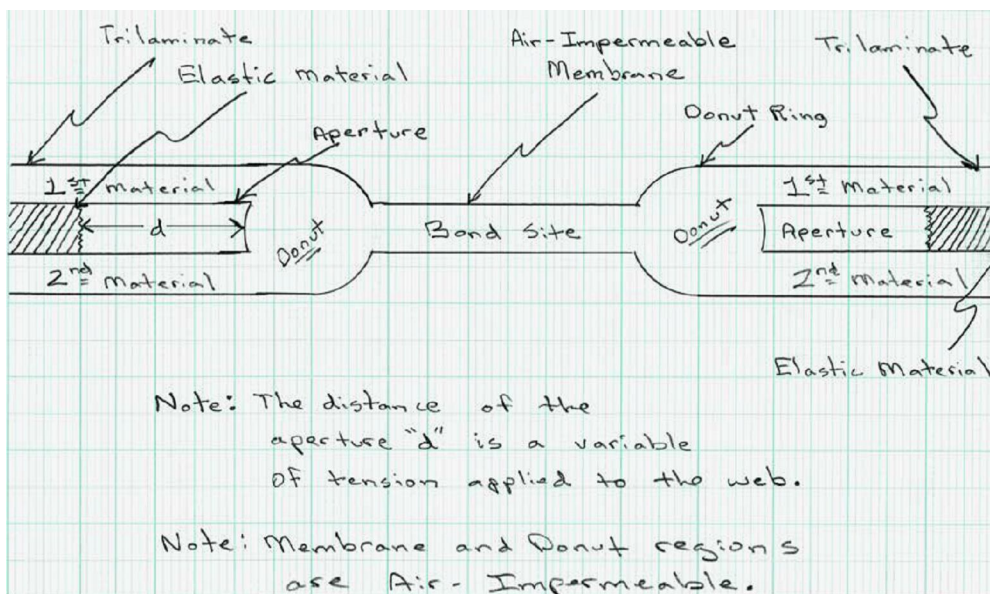 Trilaminate
Elastic Material
Aperture
Air-Impermeable
Membrane
Donut Ring
Trilaminate
1st Material
d
2nd Material
Donut
Bond Site
Donut
1st Material
Aperture
2nd Material
Elastic Material
Note: The distance of the
aperture "d" is a variable
of tension applied to the web.
Note: Membrane and Donut regions
are Air-Impermeable.